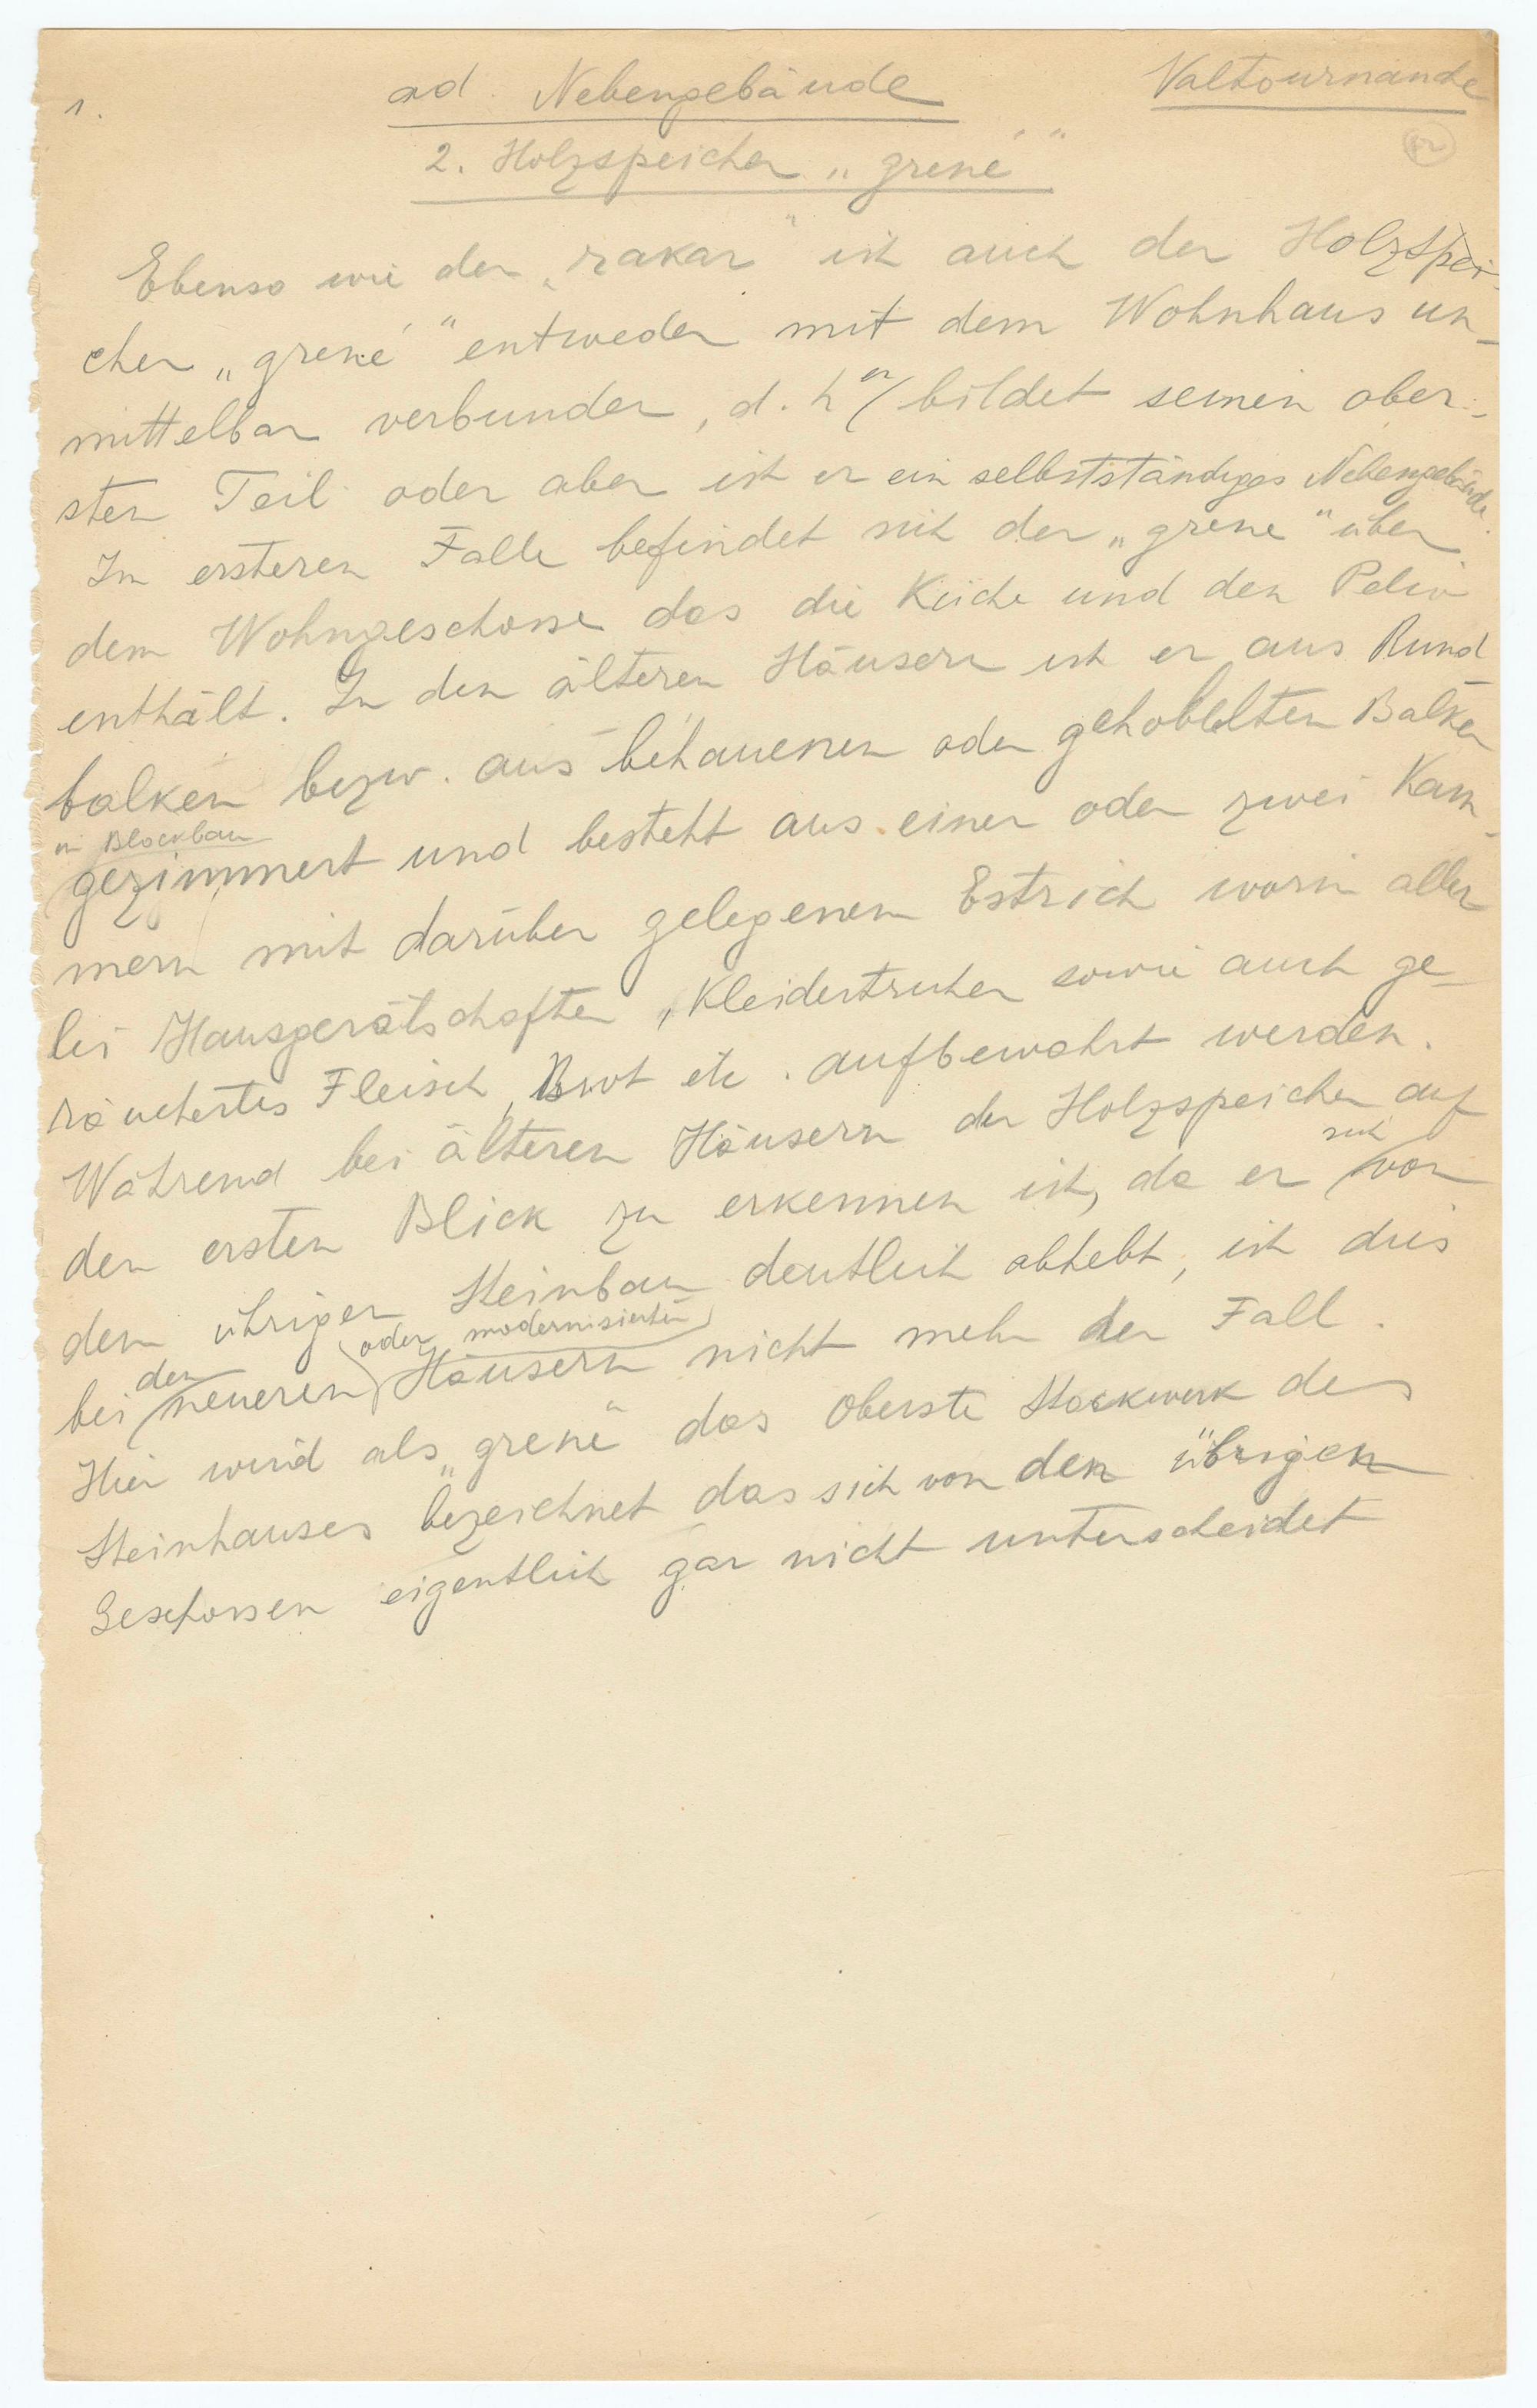 1. ad. Nebengebäude Valtournanche
2. Holzspeicher „grené"
Ebenso wie der „rakar" ist auch der Holzspei-
cher „grené" entweder mit dem Wohnhaus un-
mittelbar verbunden, d. h er bildet seinen ober-
sten Teil oder aber ist er ein selbstständiges Nebengebäude.
Im ersteren Falle befindet sich der „grene" über
dem Wohngeschosse das die Küche und den
enthält. In den älteren Häusern ist er aus Rund
balken bezw. aus behauenen oder gehobelten Balken
in Blockbau
gezimmert und besteht aus einer oder zwei Kam-
mern mit darüber gelegenem Estrich worin aller
lei Hausgerätschaften, Kleidertruhen sowie auch ge-
räuchertes Fleisch, Brot etc. aufbewahrt werden.
Während bei älteren Häusern der Holzspeicher auf
den ersten Blick zu erkennen ist, da er sich von
dem übrigen Steinbau deutlich abhebt, ist dies
bei den neueren oder modernisierten Häusern nicht mehr der Fall.
Hier wird als „grené" das oberste Stockwerk des
Steinhauses bezeichnet das sich von den übrigen
Geschossen eigentlich gar nicht unterscheidet